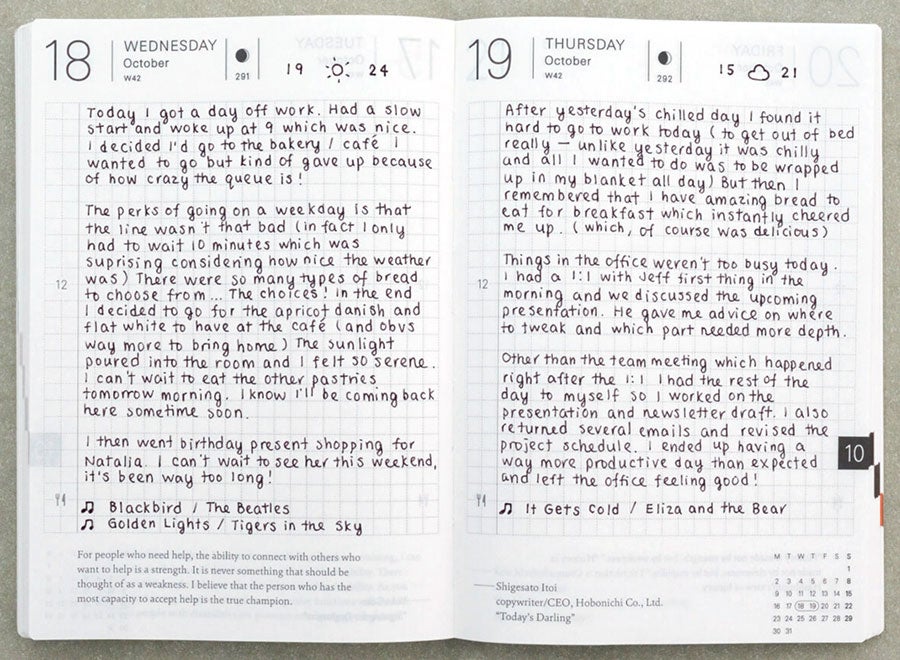 18 WEDNESDAY
October
W42
291
19 24
Today I got a day off work. Had a slow
start and woke up at 9 which was nice.
I decided I'd go to the bakery / café I
wanted to go but kind of gave up because
of how crazy the queue is!
The perks of going on a weekday is that
the line wasn't that bad (in fact I only
had to wait 10 minutes which was
suprising considering how nice the weather
was) There were so many types of bread
12
to choose from... The choices! In the end
I decided to go for the apricot danish and
flat white to have at the café (and obvs
way more to bring home) The sunlight
poured into the room and I felt SO serene.
I can't wait to eat the other pastries
tomorrow morning. I know I'll be coming back
here sometime soon.
I then went birthday present shopping for
Natalia. I can't wait to see her this weekend,
it's been way too long!
♫ Blackbird / The Beatles
♫ Golden Lights / Tigers in the Sky
For people who need help, the ability to connect with others who
want to help is a strength. It is never something that should be
thought of as a weakness. I believe that the person who has the
most capacity to accept help is the true champion.
19 THURSDAY
October
W42
292
15 21
After yesterday's chilled day I found it
hard to go to work today (to get out of bed
really — unlike yesterday it was chilly
and all I wanted to do was to be wrapped
up in my blanket all day) But then I
remembered that I have amazing bread to
eat for breakfast which instantly cheered
me up. (which, of course was delicious)
Things in the office weren't too busy today.
12
I had a 1:1 with Jeff first thing in the
morning and we discussed the upcoming
presentation. He gave me advice on where
to tweak and which part needed more depth.
Other than the team meeting which happened
right after the 1:1 I had the rest of the
day to myself so I worked on the
presentation and newsletter draft. I also
returned several emails and revised the
project schedule. I ended up having a
way more productive day than expected
and left the office feeling good!
10
♫ It Gets Cold / Eliza and the Bear
Shigesato Itoi
copywriter/CEO, Hobonichi Co., Ltd.
"Today's Darling"
M T W T F S S
1
2 3 4 5 6 7 8
9 10 11 12 13 14 15
16 17 18 19 20 21 22
23 24 25 26 27 28 29
30 31